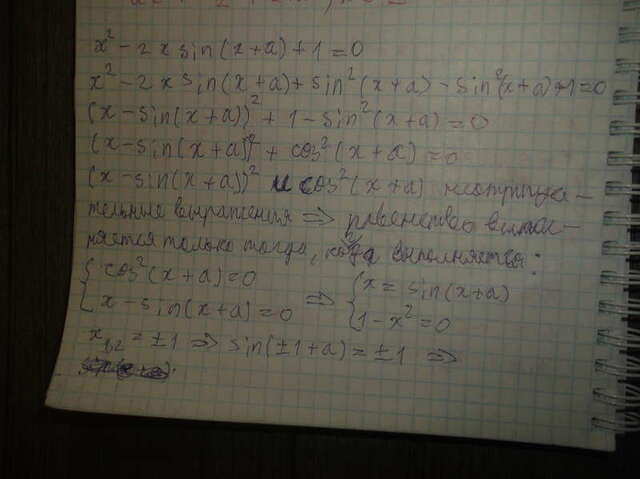 x² - 2x sin(x+a) + 1 = 0
x² - 2x sin(x+a) + sin²(x+a) - sin²(x+a) + 1 = 0
(x - sin(x+a))² + 1 - sin²(x+a) = 0
(x - sin(x+a))² + cos²(x+a) = 0
(x - sin(x+a))² и cos²(x+a) неотрица-
тельные выражения ⇒ равенство выпол-
няется только тогда, когда выполняется:
{ cos²(x+a) = 0 ⇒ { x = sin(x+a)
{ x - sin(x+a) = 0 { 1 - x² = 0
x₁,₂ = ±1 ⇒ sin(±1+a) = ±1 ⇒